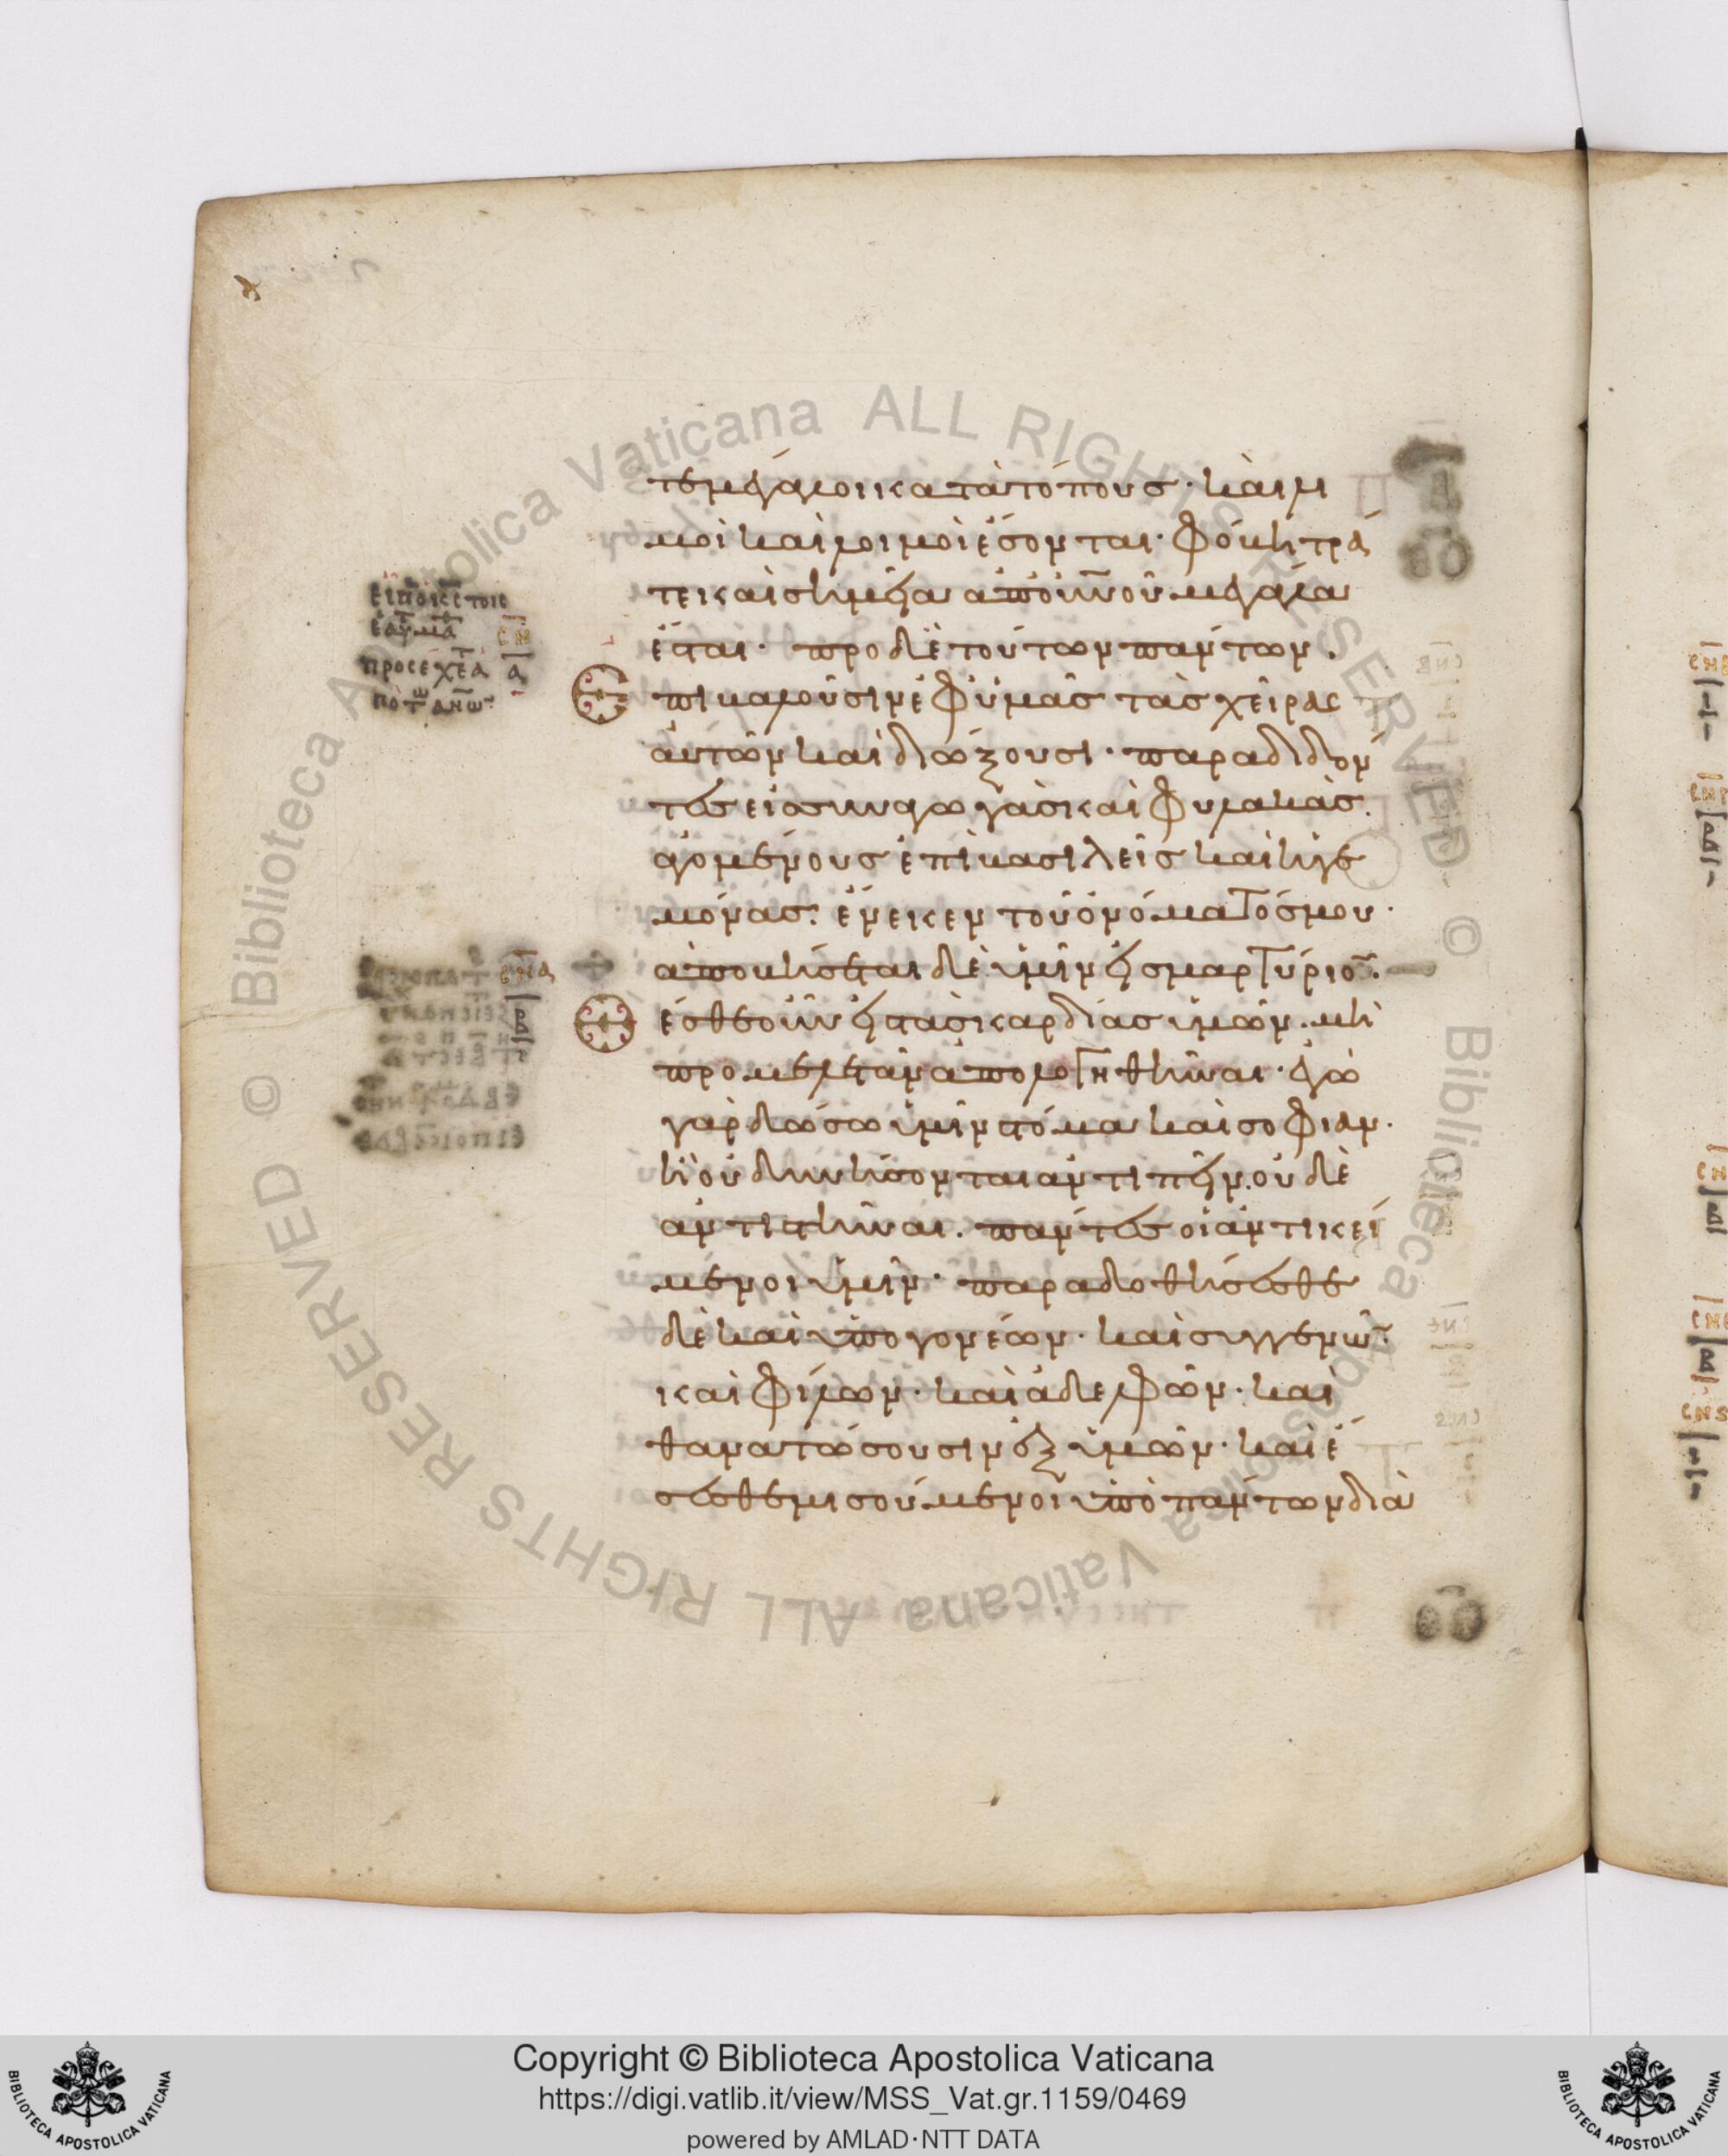 τε μεγάλοι κατὰ τόπους· καὶ λι
μοὶ καὶ λοιμοὶ ἔσονται· φόβητρά
τε καὶ σημεῖα ἀπ' οὐνοῦ μεγάλα
ἔσται· προ δὲ τούτων πάντων.
Επιβαλοῦσιν ἐφ' ὑμᾶς τὰς χεῖρας
αὐτῶν καὶ διώξουσι· παραδιδόν
τες εἰς συναγωγὰς καὶ φυλακάς.
ἀγομένους ἐπὶ βασιλεῖς καὶ ἡγε
μόνας· ἕνεικεν τοῦ ὀνόματός μου·
ἀποβήσεται δὲ ὑμῖν εἰς μαρτύριον.
Θέσθε οὖν εἰς τὰς καρδίας ὑμῶν. μὴ
προμελετᾶν ἀπολογηθῆναι· ἐγὼ
γὰρ δώσω ὑμῖν στόμα καὶ σοφίαν·
ᾗ οὐ δυνήσονται ἀντιπεῖν. οὐδὲ
ἀντιστῆναι. πάντες οἱ ἀντικεί
μενοι ὑμῖν· παραδοθήσεσθε
δὲ καὶ ὑπὸ γονέων· καὶ συγγενῶν·
καὶ φίλων· καὶ ἀδελφῶν· καὶ
θανατώσουσιν ἐξ ὑμῶν· καὶ ἔ
σεσθε μισούμενοι ὑπὸ πάντων διὰ
Copyright © Biblioteca Apostolica Vaticana
https://digi.vatlib.it/view/MSS_Vat.gr.1159/0469
powered by AMLAD·NTT DATA
BIBLIOTECA APOSTOLICA VATICANA
BIBLIOTECA APOSTOLICA VATICANA